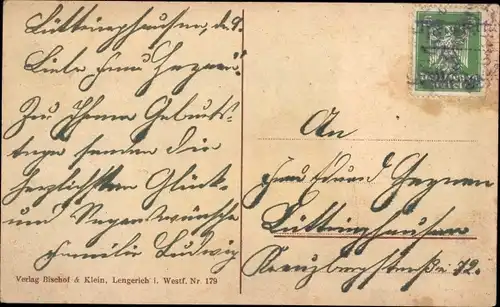 Lüttringhausen, d. 9.
Liebe Frau Hegner!
Zu Ihrem Geburts-
tage senden die
herzlichsten Glück-
und Segenswünsche
Familie Ludwig
Verlag Bischof & Klein, Lengerich i. Westf. Nr. 179
An
Frau Eduard
Lüttringhausen
Kreuzbergstraße 12.
Deutsches
Reich